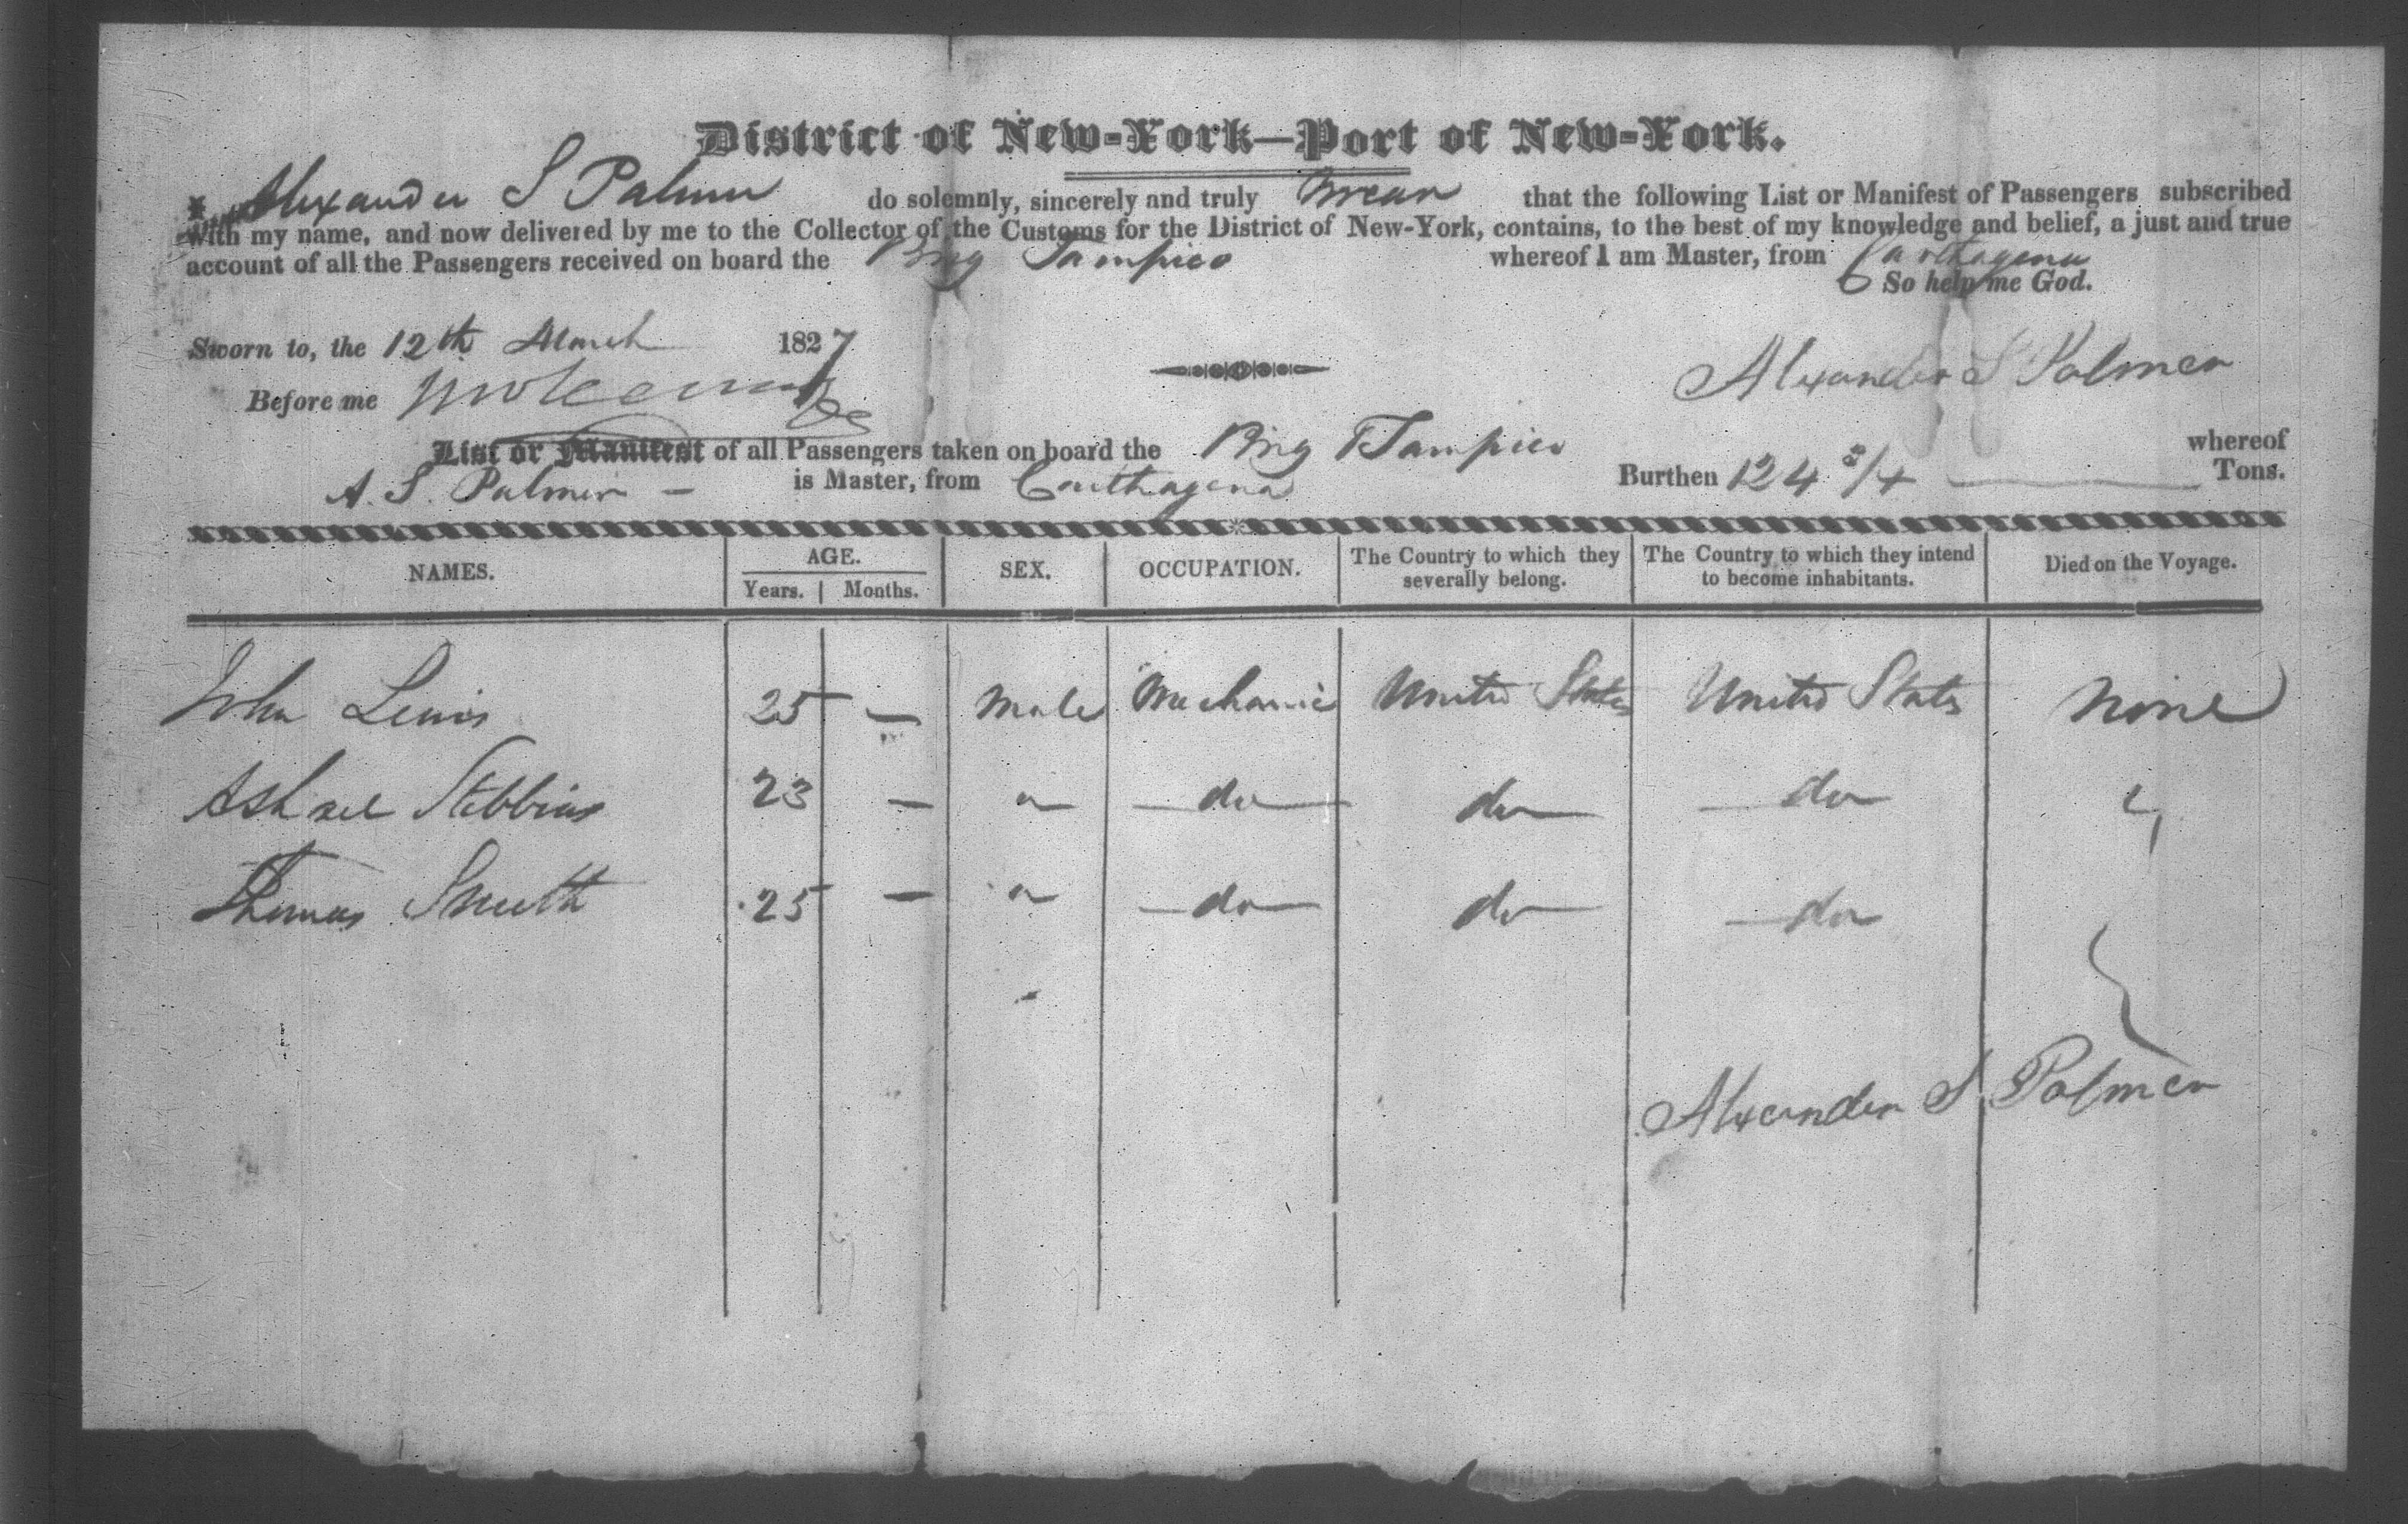 District of New-York—Port of New-York.
I, Alexander S Palmer do solemnly, sincerely and truly Swear that the following List or Manifest of Passengers subscribed
with my name, and now delivered by me to the Collector of the Customs for the District of New-York, contains, to the best of my knowledge and belief, a just and true
account of all the Passengers received on board the Brig Tampico whereof I am Master, from Carthagena
So help me God.
Sworn to, the 12th March 1827
Alexander S Palmer
Before me
List or Manifest of all Passengers taken on board the Brig Tampico whereof
A. S. Palmer — is Master, from Carthagena Burthen 124 3/4 Tons.
NAMES. AGE. SEX. OCCUPATION. The Country to which they severally belong. The Country to which they intend to become inhabitants. Died on the Voyage.
Years. Months.
John Lewis 25 — Male Mechanic United States United States None
Ashael Stebbins 23 — " do do do "
Thomas Smith 25 — " do do do
Alexander S Palmer